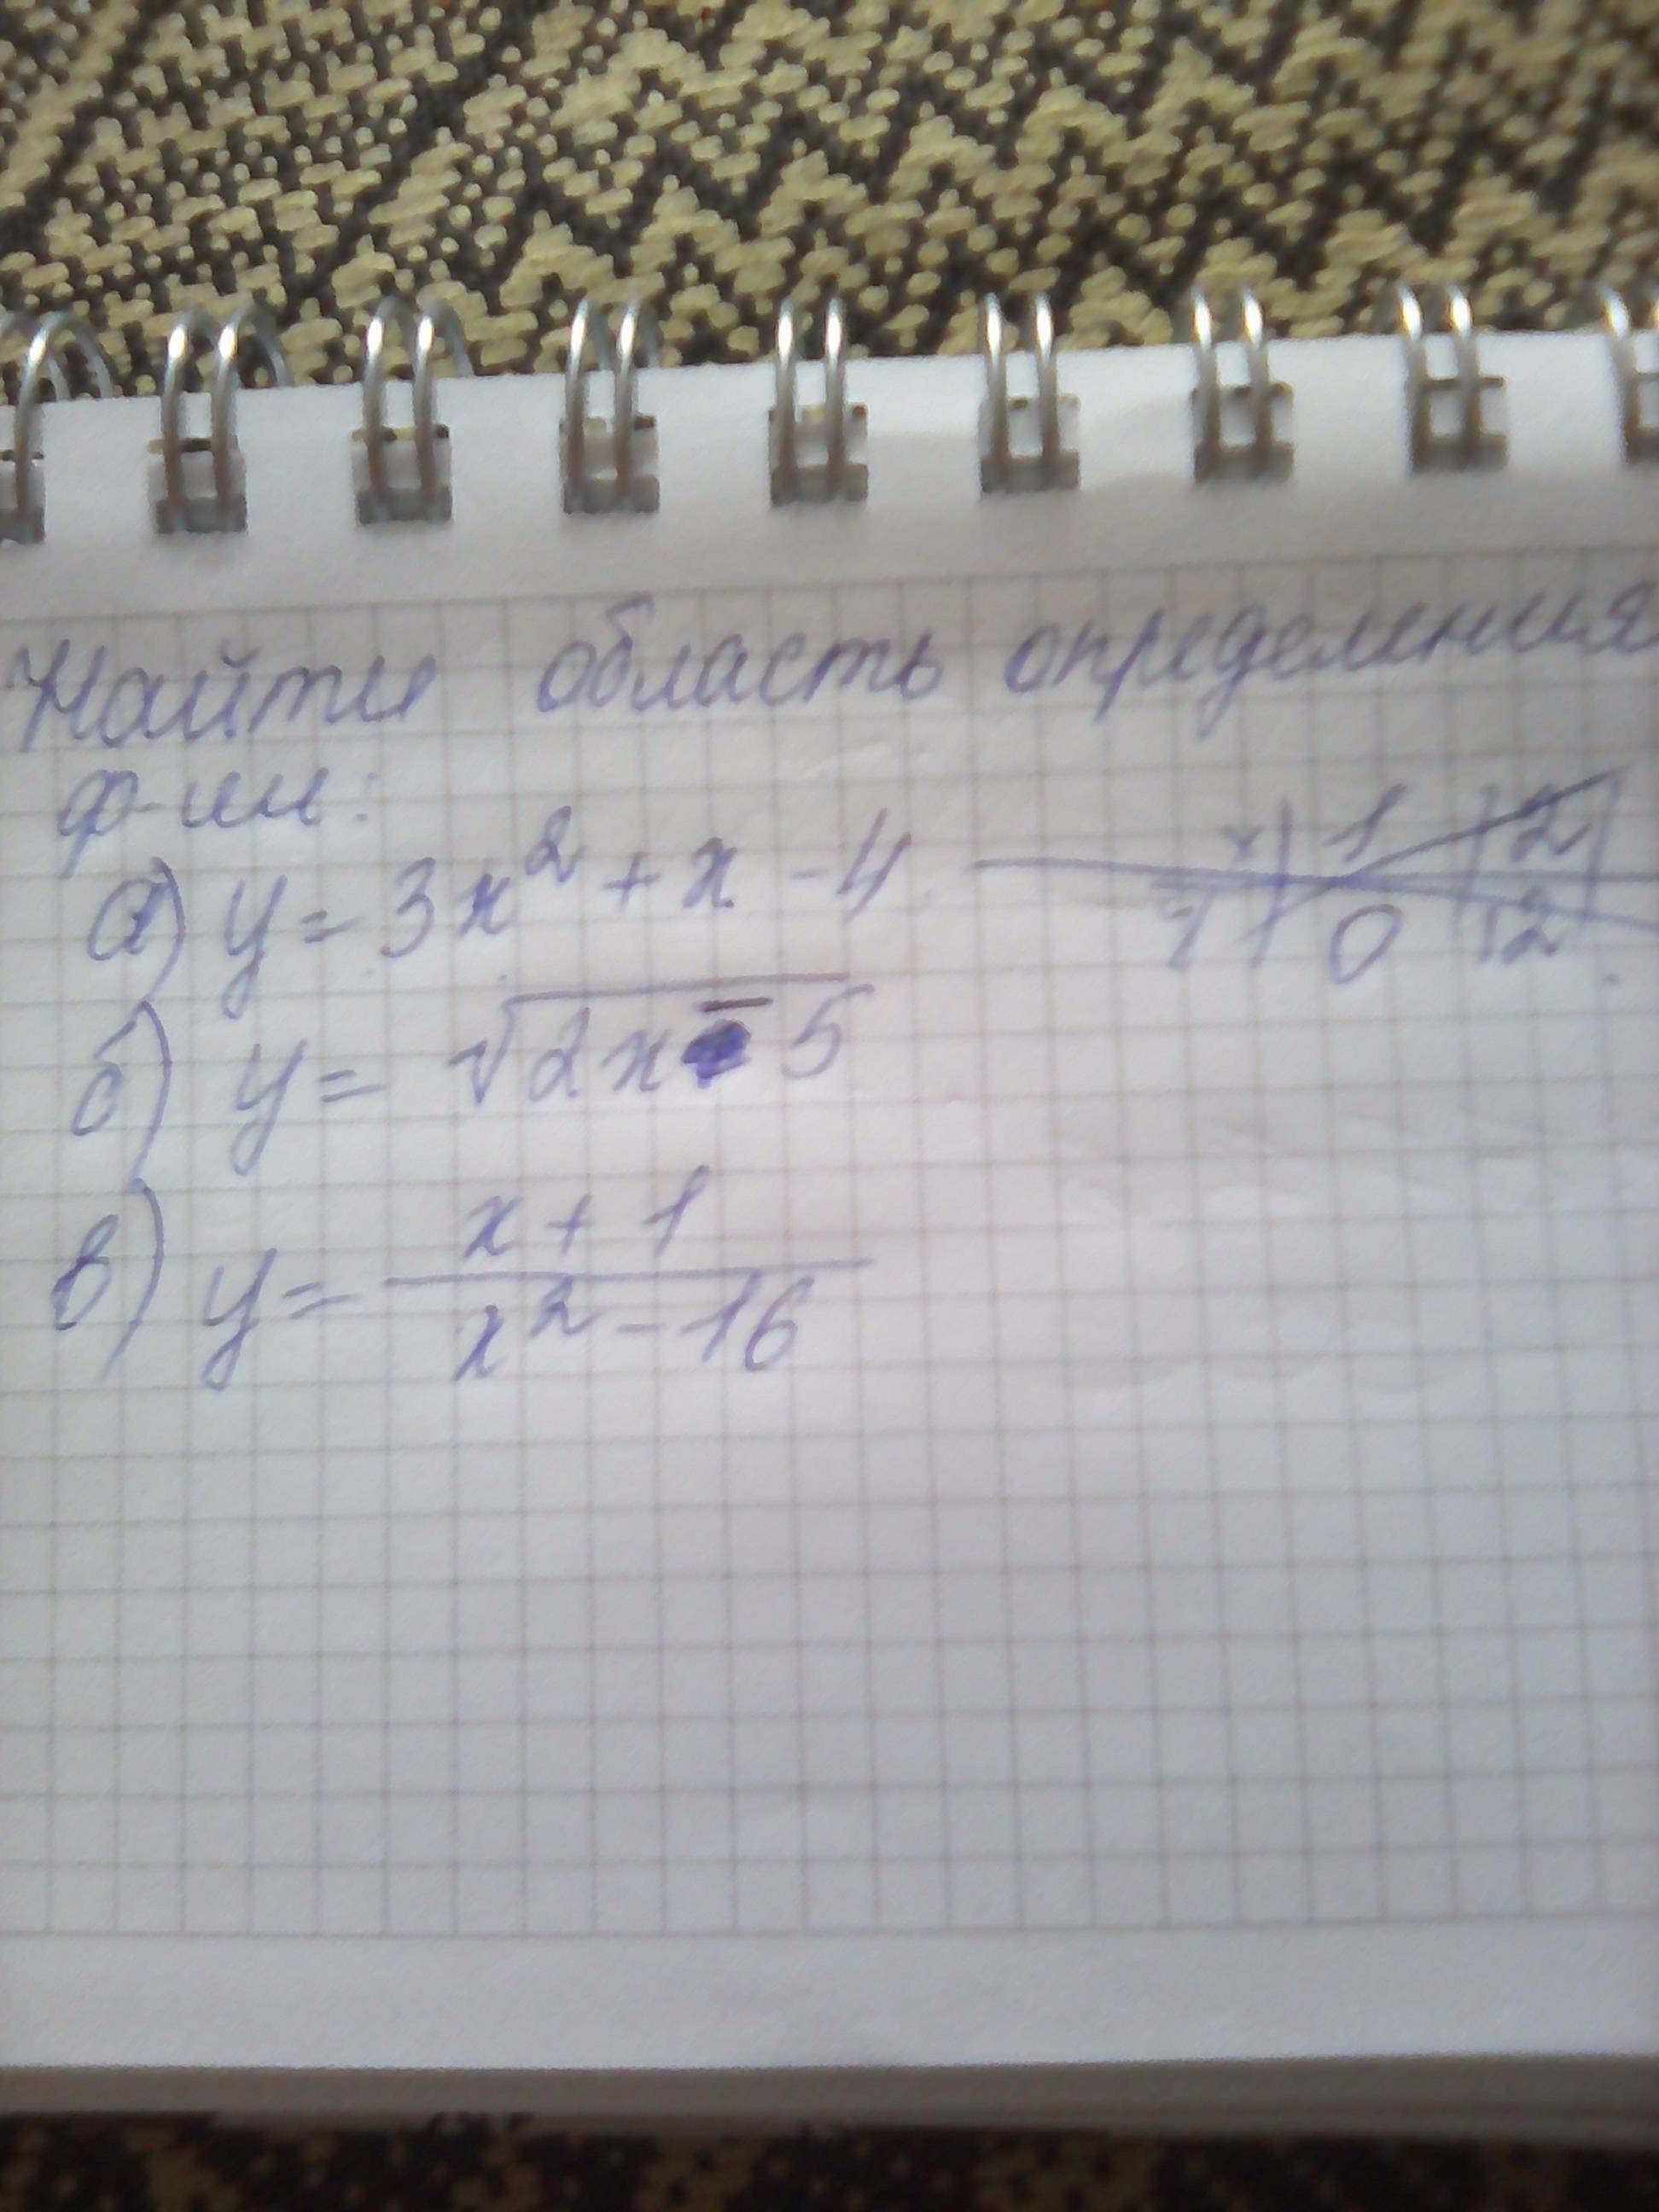 Найти область определения
ф-ии:
а) y = 3x² + x - 4
x | 1 | 2 |
y | 0 | 12
б) y = √2x - 5
в) y = x + 1
x² - 16